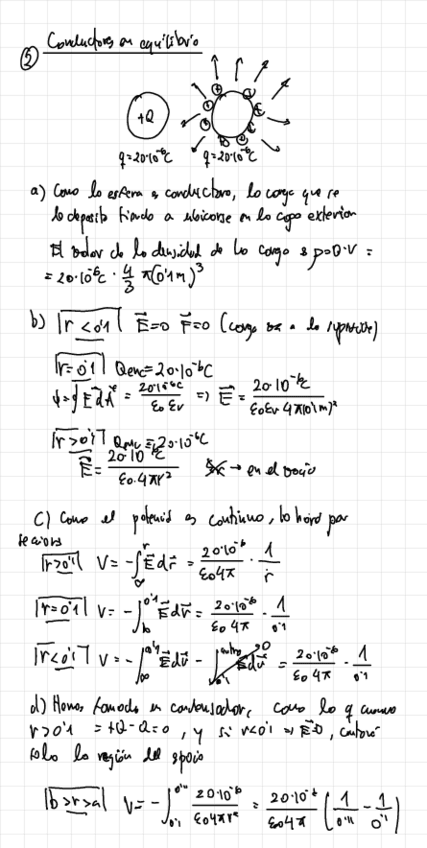 ⑤ Conductores en equilibrio
+Q
q=20·10⁻⁶C q=20·10⁻⁶C
a) Como la esfera es conductora, la carga que se
le deposita tiende a ubicarse en la capa exterior
El valor de la densidad de la carga es ρ=Q·V =
= 20·10⁻⁶C · 4/3 π(0'1m)³
b) |r < 0'1| E⃗=0 F⃗=0 (carga va a la superficie)
|r=0'1| Qenc=20·10⁻⁶C
ϕ=∮E⃗dA⃗ = 20·10⁻⁶C/ε₀εr => E⃗ = 20·10⁻⁶C/ε₀εr 4π(0'1m)²
|r>0'1| Qenc=20·10⁻⁶C
E⃗ = 20·10⁻⁶C/ε₀·4πr² → en el vacío
c) Como el potencial es continuo, lo haré por
sectores
|r>0'1| V=-∫E⃗dr⃗ = 20·10⁻⁶/ε₀4π · 1/r
|r=0'1| V=-∫E⃗dr⃗ = 20·10⁻⁶/ε₀4π · 1/0'1
|r<0'1| V=-∫E⃗dr⃗ - ∫E⃗dr⃗ = 20·10⁻⁶/ε₀4π · 1/0'1
d) Hemos formado un condensador, como la q cuando
r>0'1 = +Q-Q=0, y si r<0'1 => E⃗=0,
solo la región del espacio
|b>r>a| V=-∫ 20·10⁻⁶/ε₀4πr² = 20·10⁻⁶/ε₀4π (1/0'11 - 1/0'1)